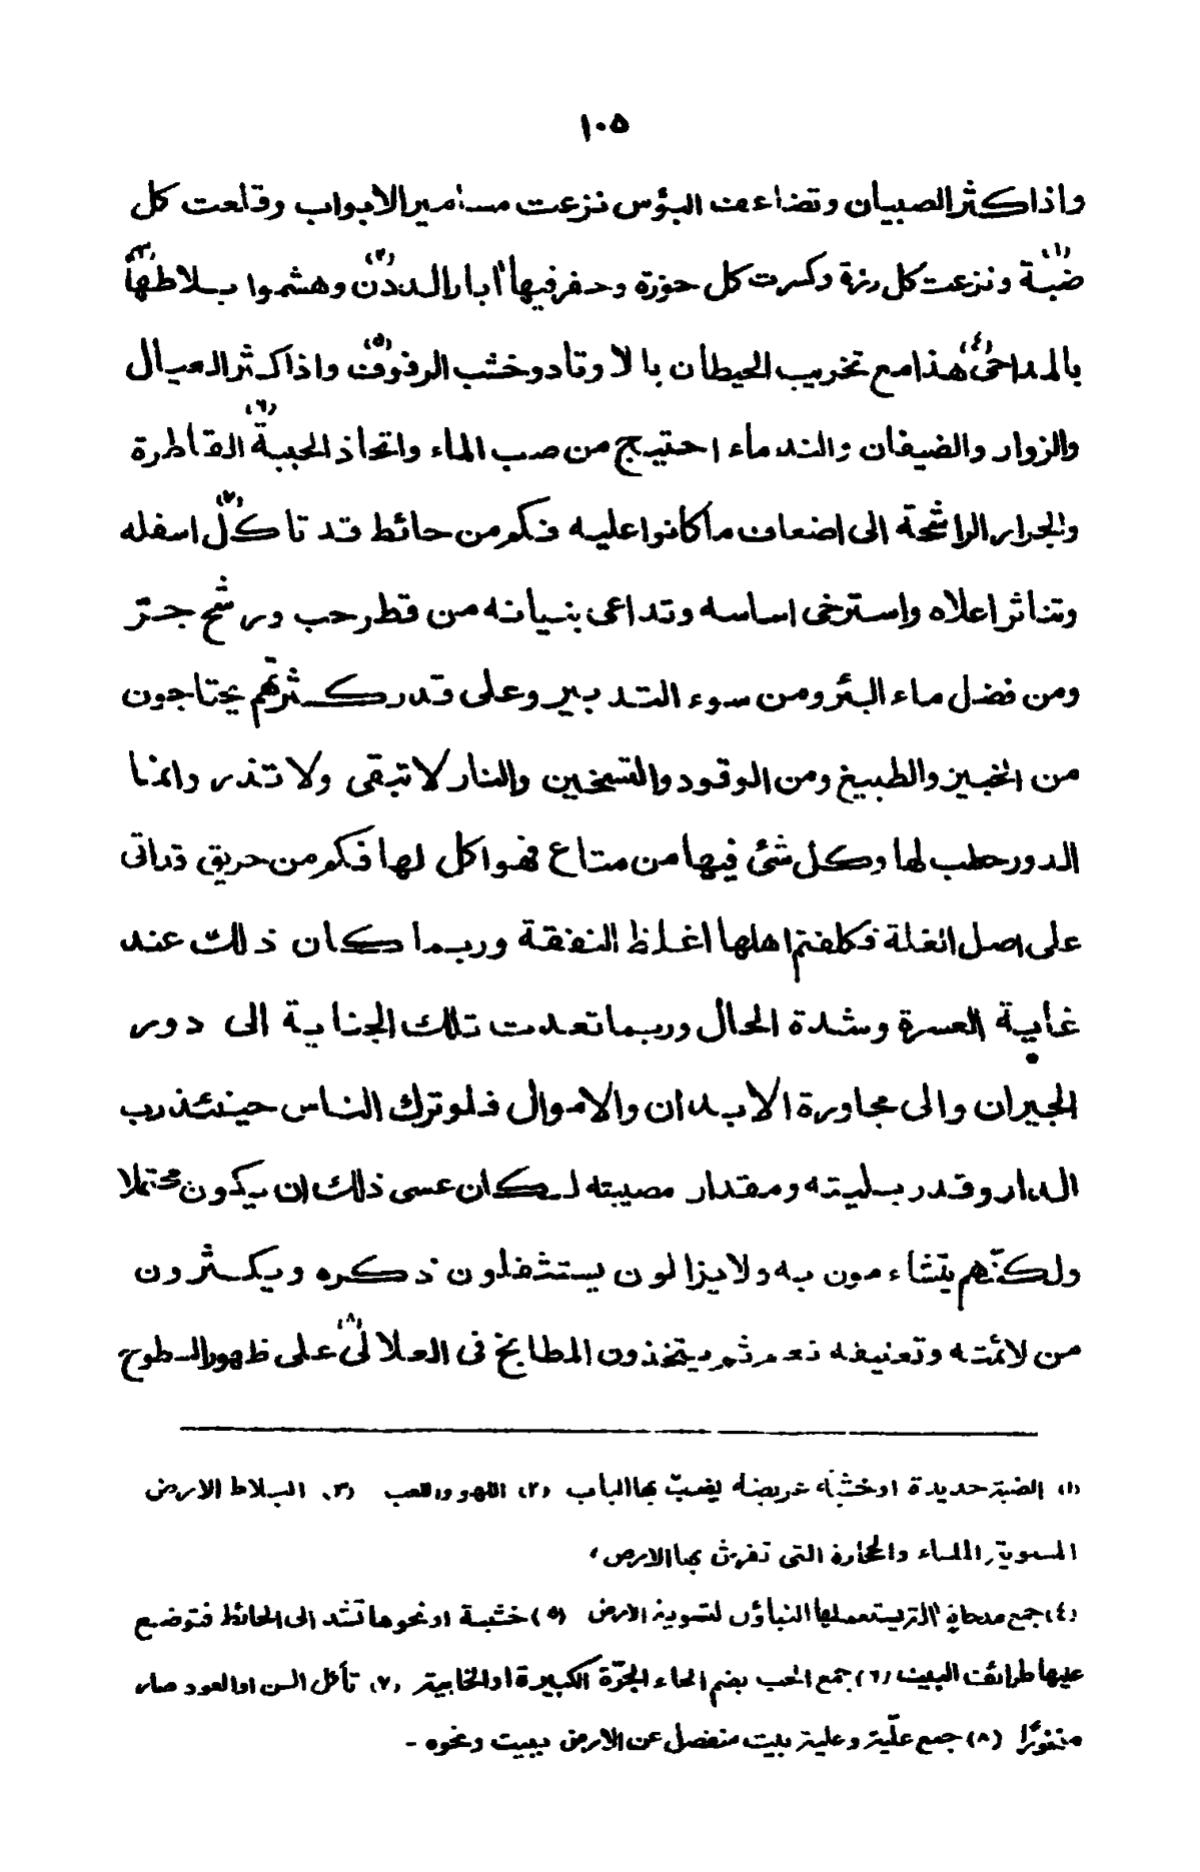 ١٠٥
واذا كثر الصبيان وتضاعف البؤس نزعت مسامير الابواب وقلعت كل
ضبّة (١) ونزعت كل رزة وكسرت كل حوزة وحفر فيها آبار الددن (٢) وهشموا بلاطها (٣)
بالمداحى (٤) هذا مع تخريب الحيطان بالاوتاد وخشب الرفوف (٥) واذا كثر العيال
والزوار والضيفان والندماء احتيج من صب الماء واتخاذ الحببة (٦) القاطرة
والجرار الراشحة الى اضعاف ما كانوا عليه فكم من حائط قد تاكّل (٧) اسفله
وتناثر اعلاه واسترخى اساسه وتداعى بنيانه من قطر حب ورشح جرّ
ومن فضل ماء البئر ومن سوء التدبير وعلى قدر كثرتهم يحتاجون
من الخبيز والطبيخ ومن الوقود والتسخين والنار لا تبقى ولا تذر وانما
الدور حطب لها وكل شئ فيها من متاع فهو اكل لها فكم من حريق قد اتى
على اصل الغلة فكلفتم اهلها اغلظ النفقة وربما كان ذلك عند
غاية العسرة وشدة الحال وربما تعدت تلك الجناية الى دور
الجيران والى مجاورة الابدان والاموال فلو ترك الناس حينئذ رب
الدار وقدر بليته ومقدار مصيبته لكان عسى ذلك ان يكون محتملا
ولكنّهم يتشاءمون به ولا يزالون يستثقلون ذكره ويكثرون
من لائمته وتعنيفه نعم ثم يتخذون المطابخ فى العلالى (٨) على ظهور السطوح
(١) الضبّة حديدة او خشبة عريضة يضبّ بها الباب (٢) اللهو واللعب (٣) البلاط الارض
المستوية الملساء والحجارة التى تفرش بها الارض
(٤) جمع مدحاة التى يستعملها البناؤن لتسوية الارض (٥) خشبة او نحوها تشد الى الحائط فتوضع
عليها طرائف البيت (٦) جمع الحب بضم الحاء الجرّة الكبيرة او الخابية (٧) تأكل السن او العود صار
منخورًا (٨) جمع علّية وعلية بيت منفصل عن الارض ببيت ونحوه -